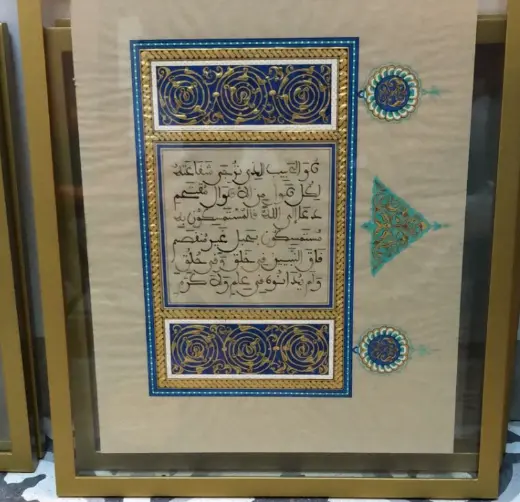 هو الحبيب الذي ترجى شفاعته
لكل هول من الأهوال مقتحم
دعا إلى الله فالمستمسكون به
مستمسكون بحبل غير منفصم
فاق النبيين في خلق وفي خلق
ولم يدانوه في علم ولا كرم